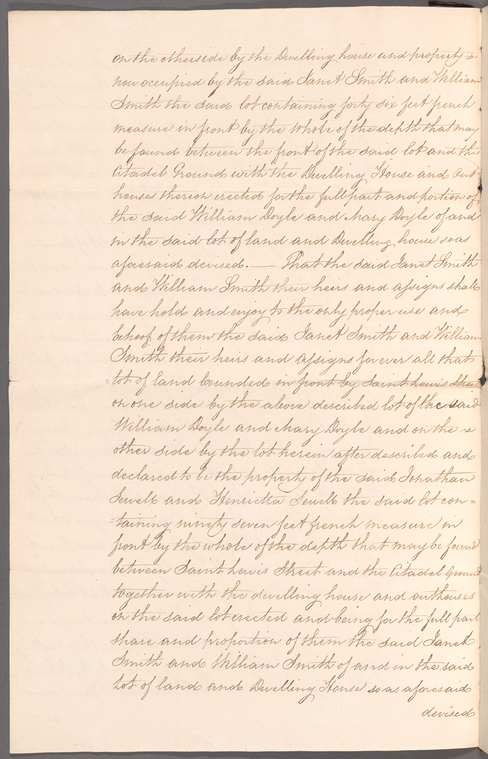 on the otherside by the Dwelling house and property
now occupied by the said Janet Smith and William
Smith the said lot containing forty six feet french
measure in front by the whole of the depth that may
be found between the front of the said lot and the
Citadel Ground with the Dwelling House and Out
houses thereon erected for the full part and portion of
the said William Doyle and Mary Doyle of and
in the said lot of land and Dwelling house so as
aforesaid devised. — That the said Janet Smith
and William Smith their heirs and assigns shall
have hold and enjoy to the only proper use and
behoof of them the said Janet Smith and William
Smith their heirs and assigns for ever all that
lot of land bounded in front by Saint Lewis Street
on one side by the above described lot of the said
William Doyle and Mary Doyle and on the
other side by the lot herein after described and
declared to be the property of the said Jonathan
Sewell and Henrietta Sewell the said lot con=
=taining ninety seven feet french measure in
front by the whole of the depth that may be found
between Saint Lewis Street and the Citadel Ground
together with the dwelling house and outhouses
on the said lot erected and being for the full part
share and proportion of them the said Janet
Smith and William Smith of and in the said
Lot of land and Dwelling House so as aforesaid
devised